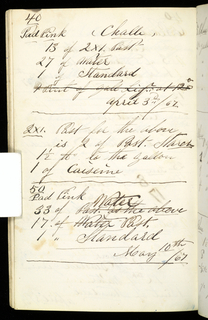 40
Pad Pink Challe.
13 of 2x1 Past.
27 of Water
1 " Standard
April 3rd/67.
2x1. Past for the above
is 2 of Past. Starch
1 1/2 lb to the Gallon
1 of Caiseine
50
Pad Pink Water
33 of Past. as the above
17 " of Water Past.
1 " Standard
May 10th/67